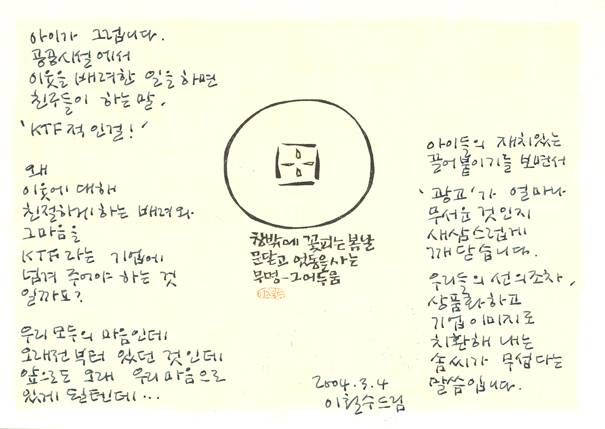 아이가 그럽니다.
공공시설에서
이웃을 배려한 일을 하면
친구들이 하는 말,
'KTF적인걸!'
왜
이웃에 대해
친절하게 하는 배려와
그마음을
KTF라는 기업에
넘겨 주어야 하는 것
일까요?
우리 모두의 마음인데
오래전부터 있던 것인데
앞으로도 오래 우리 마음으로
있게 될텐데...
창밖에 꽃피는 봄날
문닫고 엇둠을 사는
무명-그어두움
아이들의 재치있는
끌어붙이기를 보면서
'광고'가 얼마나
무서운 것인지
새삼스럽게
깨닫습니다.
우리들의 선의조차,
상품화하고
기업이미지로
치환해 내는
솜씨가 무섭다는
말씀입니다.
2004.3.4
이철수드림